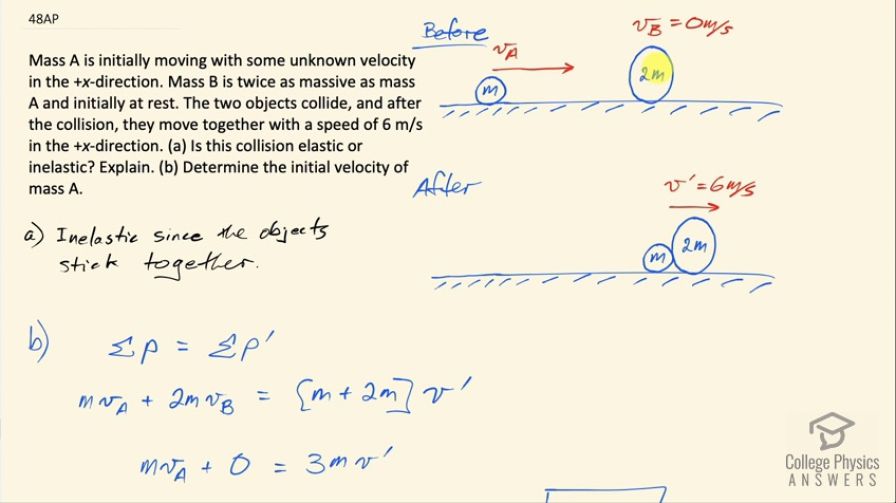 48AP
Mass A is initially moving with some unknown velocity
in the +x-direction. Mass B is twice as massive as mass
A and initially at rest. The two objects collide, and after
the collision, they move together with a speed of 6 m/s
in the +x-direction. (a) Is this collision elastic or
inelastic? Explain. (b) Determine the initial velocity of
mass A.
Before
v_A
v_B = 0m/s
m
2m
After
v' = 6m/s
m
2m
a) Inelastic since the objects
stick together.
b)
Σp = Σp'
mv_A + 2mv_B = [m + 2m] v'
mv_A + 0 = 3mv'
College Physics
ANSWERS